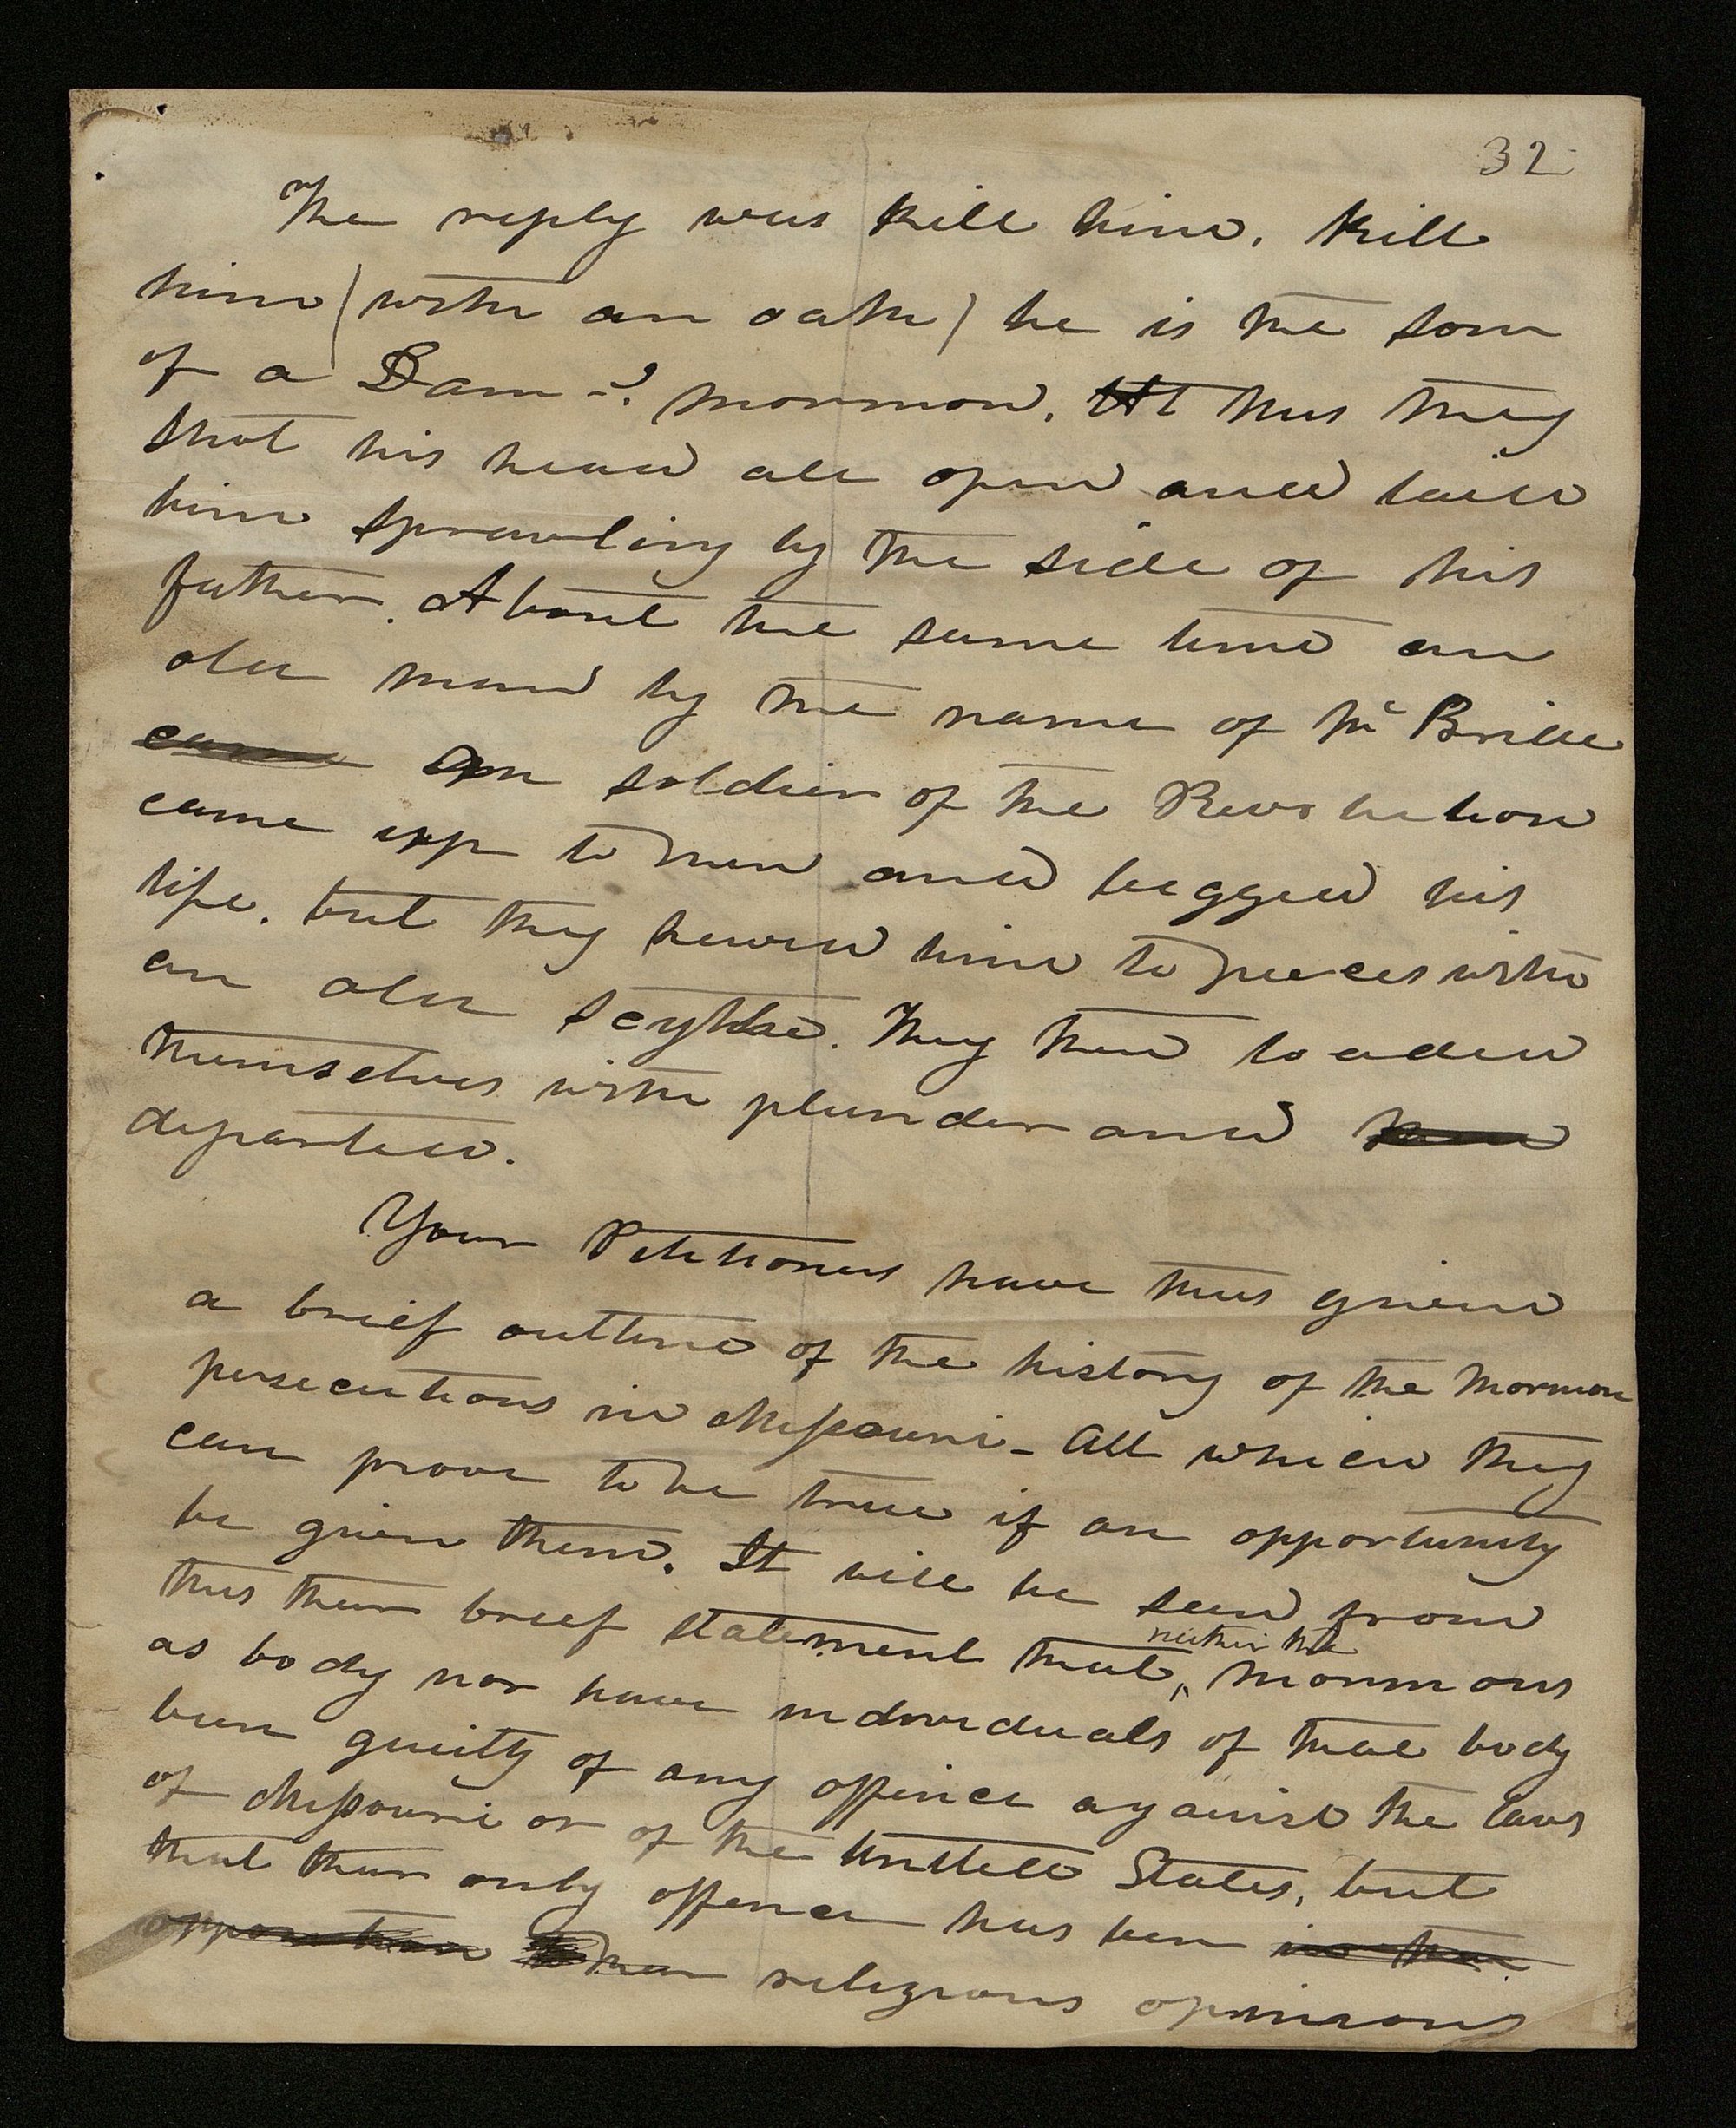 32
The reply was kill him, kill
him (with an oath) he is the son
of a Dam – ? mormon. At this they
shot his head all open and laid
him sprawling by the side of his
father. About the same time an
old man by the name of Mc Bride
came a soldier of the Revolution
came upp to them and begged his
life. but they hewed him to pieces with
an old scythe. They then loaded
themselves with plunder and
departed.
Your Petitioners have thus given
a brief outline of the history of the Mormon
persecutions in Missouri – All which they
can prove to be true if an opportunity
be given them. It will be seen from
neither the
this their brief statement that ‸ Mormons
as body nor have individuals of that body
been guilty of any offence against the laws
of Missouri or of the United States, but
that their only offence has been in their
opposition their religious opinions